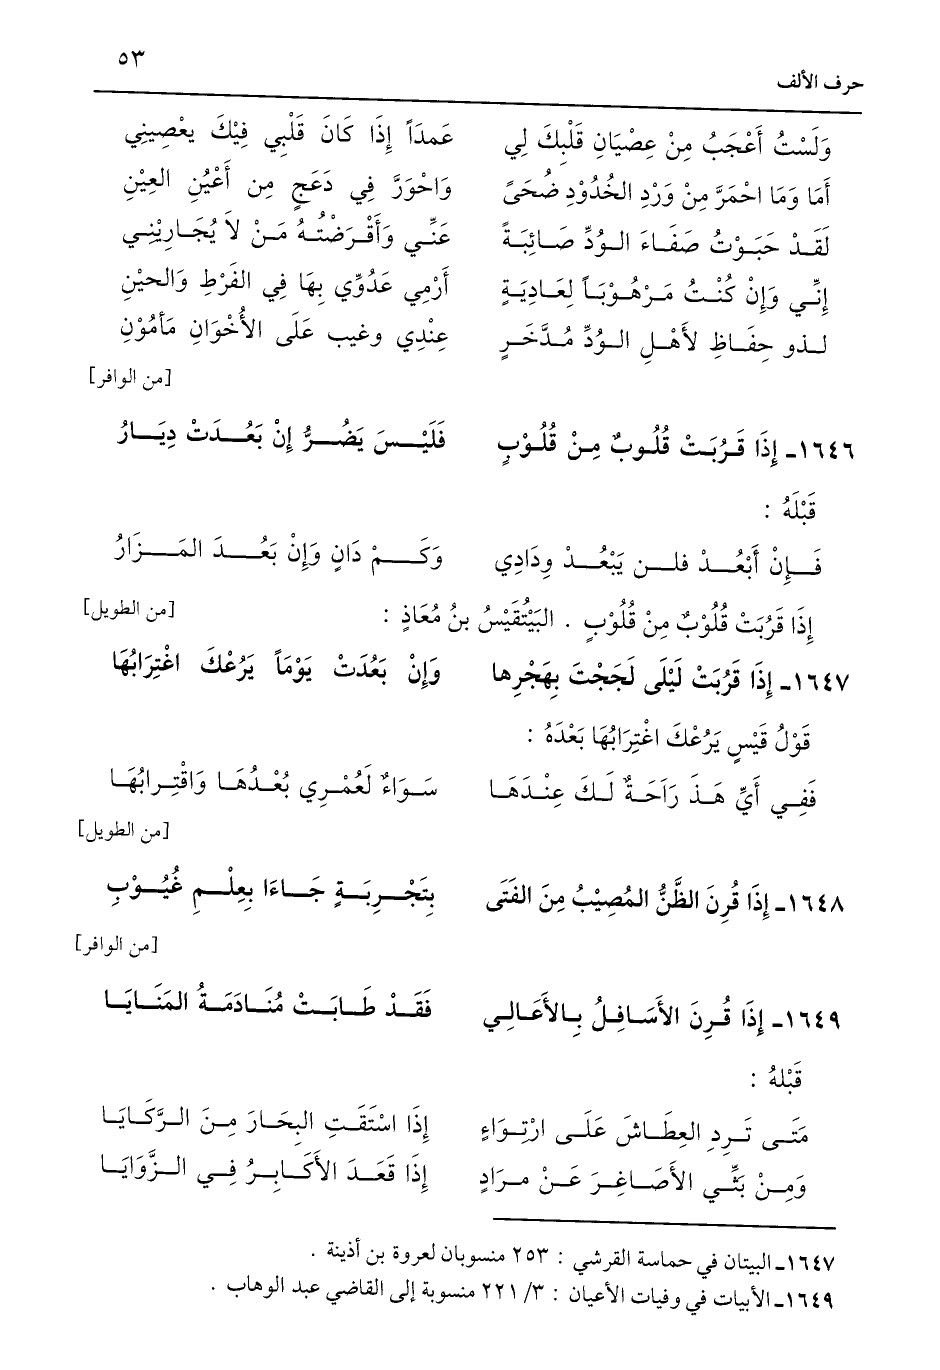 ٥٣
حرف الألف
وَلَسْتُ أَعْجَبُ مِنْ عِصْيَانِ قَلْبِكَ لِي عَمدَاً إِذَا كَانَ قَلْبِي فِيْكَ يعْصِيني
أمَا وَمَا احْمَرَّ مِنْ وَرْدِ الخُدُوْدِ ضُحَىً وَاحْوَرَّ فِي دَعَجٍ مِن أعْيُنِ العِيْنِ
لَقَدْ حَبَوْتُ صَفَاءَ الوُدِّ صَائِبَةً عَنِّي وَأقْرَضْتُهُ مَنْ لاَ يُجَارِيْنِي
إِنِّي وَإِنْ كُنْتُ مَرْهُوْبَاً لِعَادِيَةٍ أَرْمِي عَدُوِّي بِهَا فِي الفَرْطِ وَالحيْنِ
لذو حِفَاظِ لأهْلِ الوُدِّ مُدَّخَرٍ عِنْدِي وغيب عَلَى الأُخْوَانِ مَأمُوْنِ
[من الوافر]
١٦٤٦ـ إِذَا قَرُبَتْ قُلُوبٌ مِنْ قُلُوْبٍ فَلَيْسَ يَضُرُّ إِنْ بَعُدَتْ دِيَارُ
قَبْلَهُ :
فَإِنْ أَبْعُدْ فلن يَبْعُدْ وِدَادِي وَكَمْ دَانٍ وَإِنْ بَعُدَ المَزَارُ
إِذَا قَرُبَتْ قُلُوْبٌ مِنْ قُلُوْبٍ . البَيْتُقَيْسُ بنُ مُعَاذٍ : [من الطويل]
١٦٤٧ـ إِذَا قَرُبَتْ لَيْلَى لَجَجْتَ بِهَجْرِها وَإِنْ بَعُدَتْ يَوْمَاً يَرُعْكَ اغْتِرَابُهَا
قَوْلُ قَيْسٍ يَرُعْكَ اغْتِرَابُهَا بَعْدَهُ :
فَفِي أَيِّ هَذَ رَاحَةٌ لَكَ عِنْدَهَا سَوَاءٌ لَعُمْرِي بُعْدُهَا وَاقْتِرابُهَا
[من الطويل]
١٦٤٨ـ إِذَا قُرِنَ الظَّنُّ المُصِيْبُ مِنَ الفَتَى بِتَجْرِبَةٍ جَاءَا بِعِلْمِ غُيُوْبِ
[من الوافر]
١٦٤٩ـ إِذَا قُرِنَ الأَسَافِلُ بِالأَعَالِي فَقَدْ طَابَتْ مُنَادَمَةُ المَنَايَا
قَبْلهُ :
مَتَى تَرِدِ العِطَاشَ عَلَى ارْتِوَاءٍ إِذَا اسْتَقَتِ البِحَارَ مِنَ الرَّكَايَا
وَمِنْ بَثِّي الأَصَاغِرَ عَنْ مرَادٍ إِذَا قَعَدَ الأكَابِرُ فِي الزَّوَايَا
١٦٤٧ـ البيتان في حماسة القرشي : ٢٥٣ منسوبان لعروة بن أذينة .
١٦٤٩ـ الأبيات في وفيات الأعيان : ٣/ ٢٢١ منسوبة إلى القاضي عبد الوهاب .